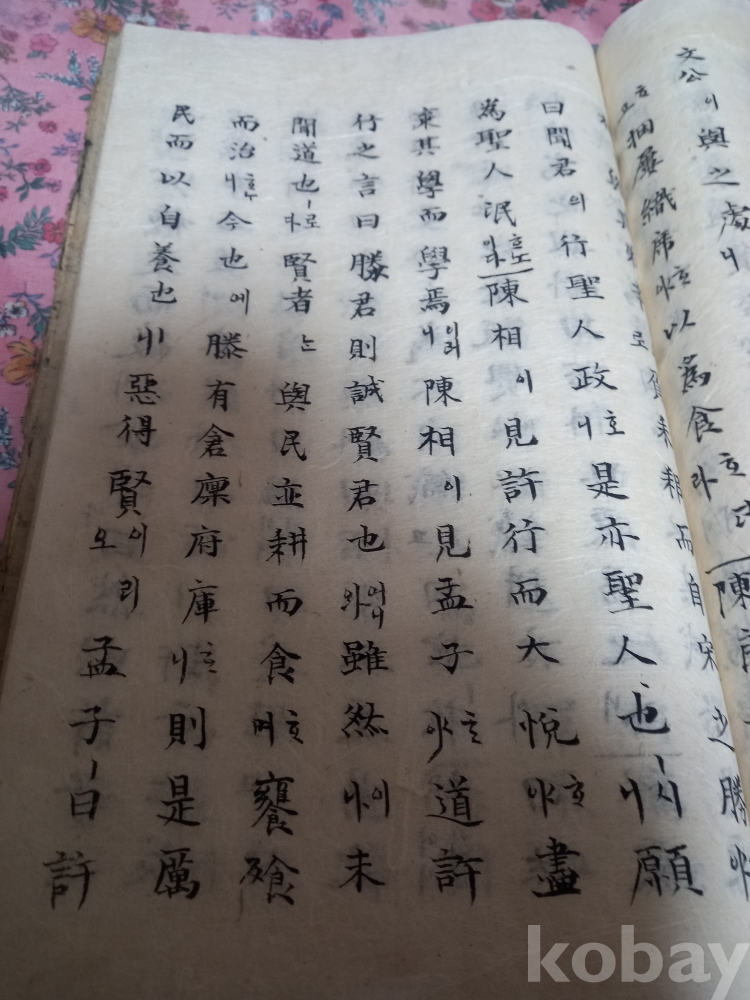 文公이與之處니
捆屨織席ᄒᆞ야以爲食ᄒᆞ라
耒耜而自宋之勝야
曰聞君의行聖人政ᄒᆞ니是亦聖人也ㅣ시니願
為聖人氓ᄒᆞ노이다陳相이見許行而大悅ᄒᆞ야盡
棄其學而學焉이러니陳相이見孟子ᄒᆞ야道許
行之言曰勝君則誠賢君也어니와雖然이나未
聞道也ㅣ로다賢者는與民並耕而食ᄒᆞ며饔飧
而治ᄒᆞᄂᆞ니今也에滕有倉廩府庫ᄒᆞ니則是厲
民而以自養也ㅣ니惡得賢이리오
孟子ㅣ曰許
kobay